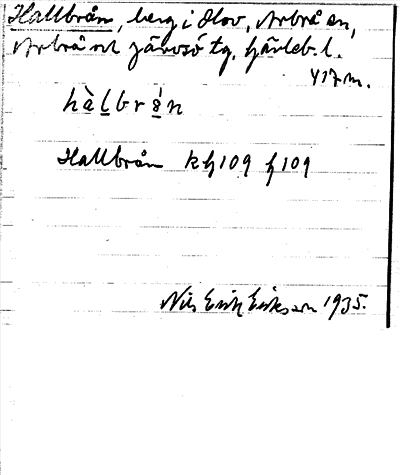 Hallbrån, berg i Flov, Arbrå sn,
Arbrå och Järvsö tg, Gävleb. l.
417 m.
hàlbrån
Hallbrån kf 109 f 109
Nils Erik Eriksson 1935.